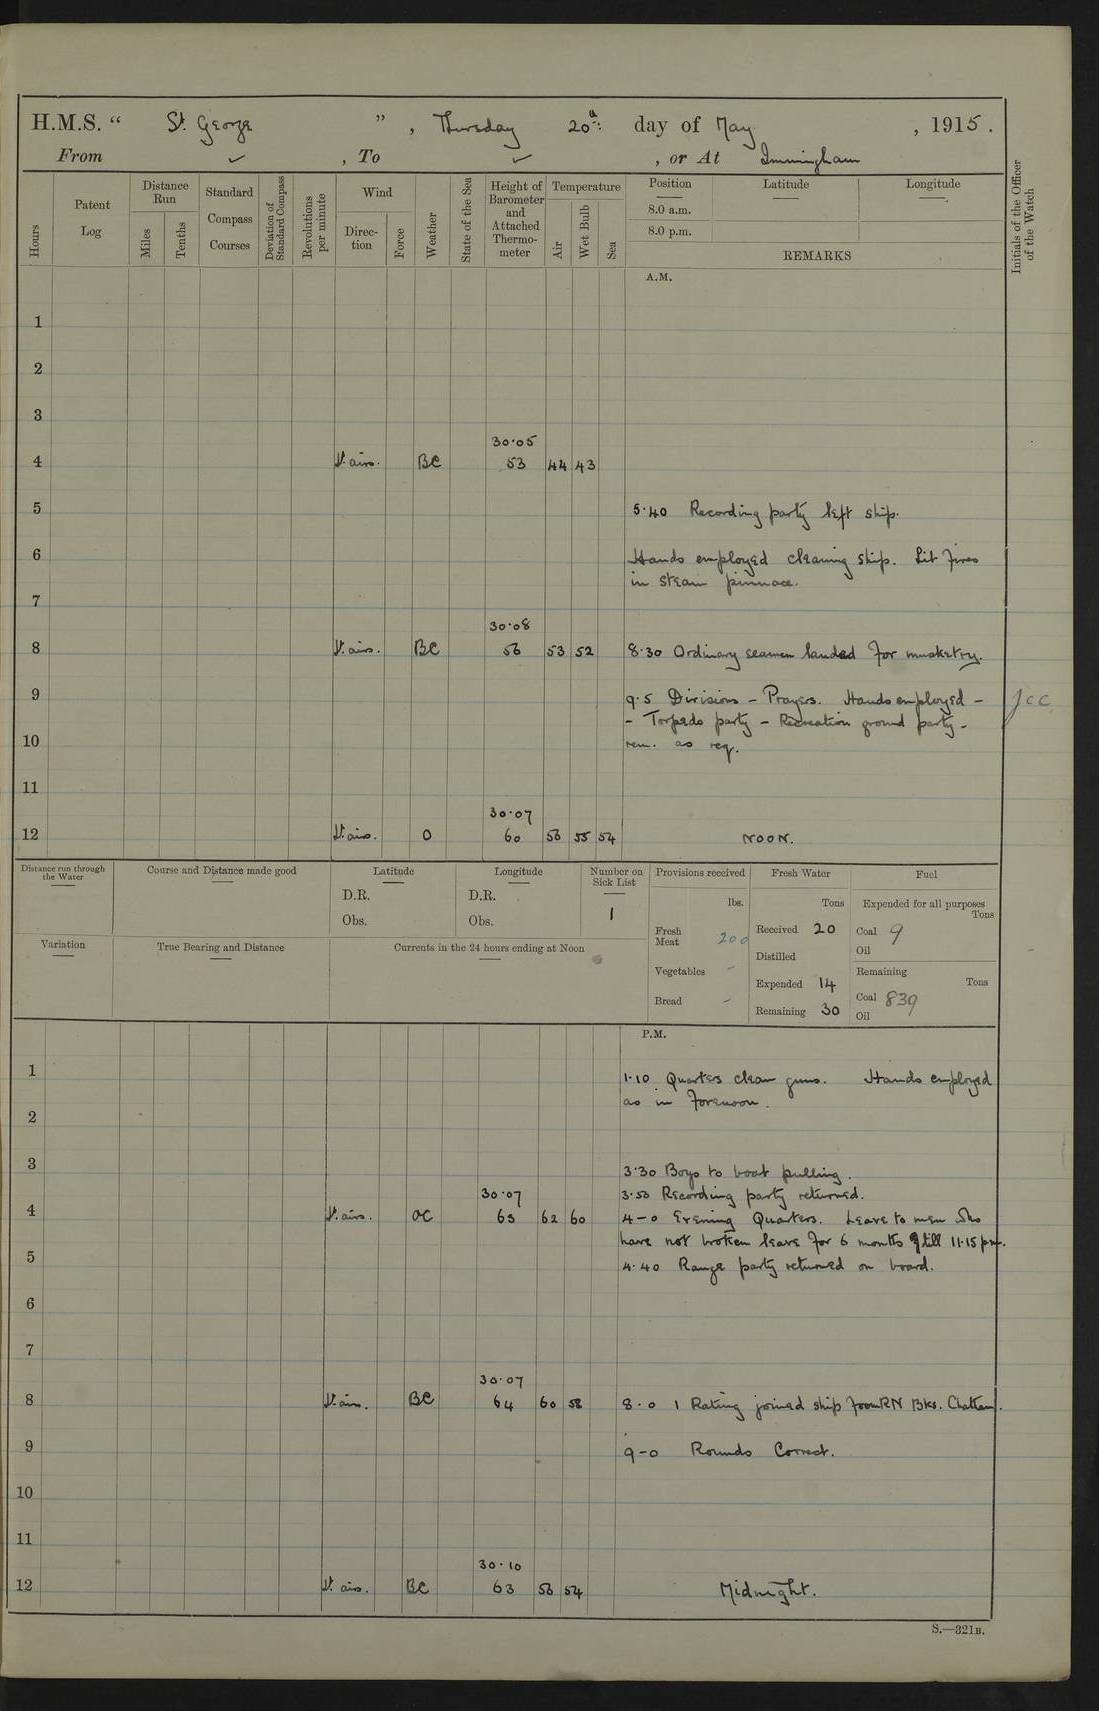 H.M.S. “ St. George ” , Thursday 20th day of May , 1915.
From ✓ , To ✓ , or At Immingham
Hours
Patent Log
Distance Run
Miles
Tenths
Standard Compass Courses
Deviation of Standard Compass
Revolutions per minute
Wind
Direction
Force
Weather
State of the Sea
Height of Barometer and Attached Thermometer
Temperature
Air
Wet Bulb
Sea
Position
Latitude
Longitude
8.0 a.m.
8.0 p.m.
REMARKS
Initials of the Officer of the Watch
A.M.
1
2
3
30·05
4 Lt. airs. BC 53 44 43
5 5·40 Recording party left ship.
6 Hands employed cleaning ship. Lit fires
in steam pinnace.
7
30·08
8 Lt. airs. BC 56 53 52 8·30 Ordinary seamen landed for musketry.
9 9·5 Divisions – Prayers. Hands employed – JCC
– Torpedo party – Recreation ground party –
10 rem. as req.
11
30·07
12 Lt. airs. O 60 56 55 54 NOON.
Distance run through the Water
Course and Distance made good
Latitude
D.R.
Obs.
Longitude
D.R.
Obs.
Number on Sick List
1
Provisions received
lbs.
Fresh Meat 200
Vegetables –
Bread –
Fresh Water
Tons
Received 20
Distilled
Expended 14
Remaining 30
Fuel
Expended for all purposes
Tons
Coal 9
Oil
Remaining
Tons
Coal 839
Oil
Variation
True Bearing and Distance
Currents in the 24 hours ending at Noon
P.M.
1 1·10 Quarters clean guns. Hands employed
as in forenoon.
2
3 3·30 Boys to boat pulling.
30·07 3·50 Recording party returned.
4 Lt. airs. OC 63 62 60 4–0 Evening Quarters. Leave to men who
have not broken leave for 6 months till 11·15 pm.
5 4·40 Range party returned on board.
6
7
30·07
8 Lt. airs. BC 64 60 58 8·0 1 Rating joined ship from RN Bks. Chatham.
9 9–0 Rounds Correct.
10
11
30·10
12 Lt. airs. BC 63 56 54 Midnight.
S.—321B.